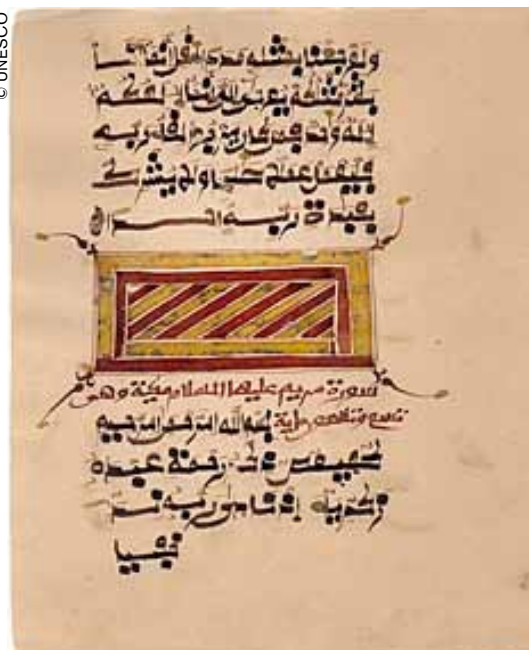 © UNESCO
ولو جئنا بمثله مددا قل انما انا
بشر مثلكم يوحى الي انما الهكم
اله وحد فمن كان يرجوا لقا ربه
فليعمل عملا صلحا ولا يشرك
بعبدة ربه احدا
سورة مريم عليها السلام مكية وهي
تسع وتسعون ءاية بسم الله الرحمن الرحيم
كهيعص ذكر رحمة عبده
زكريا اذ نادى ربه ندا
خفيا